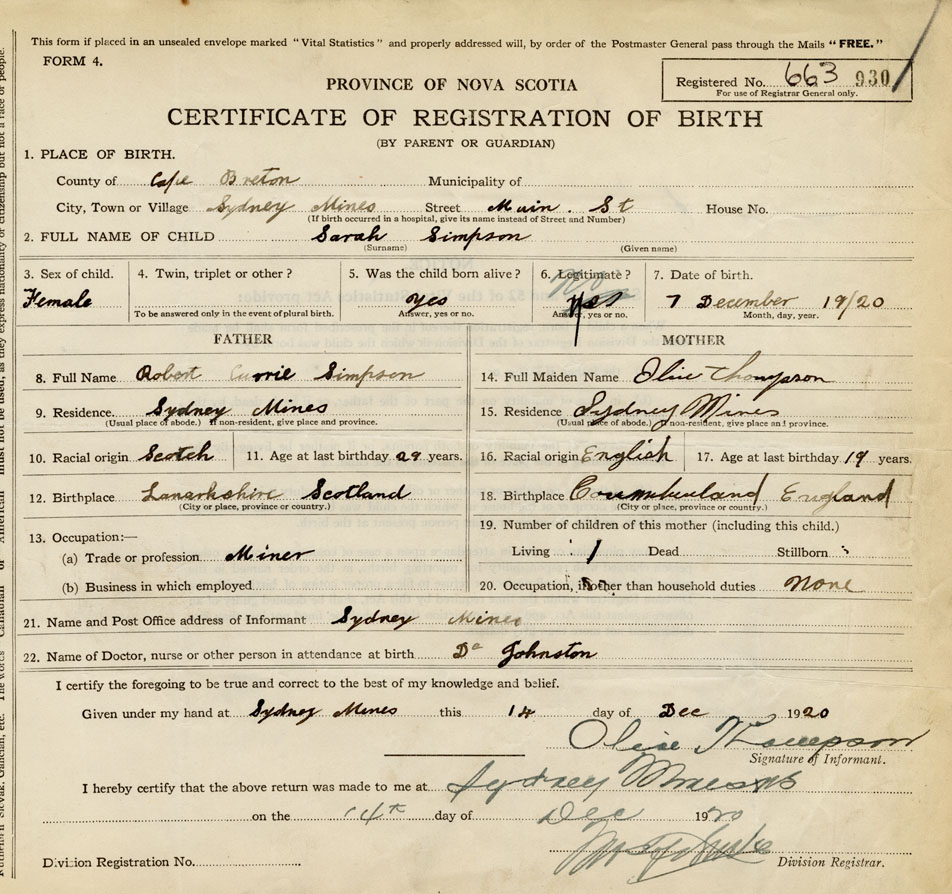 This form if placed in an unsealed envelope marked "Vital Statistics" and properly addressed will, by order of the Postmaster General pass through the Mails "FREE."
FORM 4.
Registered No. 663 930
For use of Registrar General only.
PROVINCE OF NOVA SCOTIA
CERTIFICATE OF REGISTRATION OF BIRTH
(BY PARENT OR GUARDIAN)
1. PLACE OF BIRTH.
County of Cape Breton Municipality of
City, Town or Village Sydney Mines Street Main. St House No.
(If birth occurred in a hospital, give its name instead of Street and Number)
2. FULL NAME OF CHILD Sarah Simpson
(Surname) (Given name)
3. Sex of child. 4. Twin, triplet or other? 5. Was the child born alive? 6. Legitimate? 7. Date of birth.
No
Female yes yes 7 December 19/20
To be answered only in the event of plural birth. Answer, yes or no. Answer, yes or no. Month, day, year.
FATHER MOTHER
8. Full Name Robert Currie Simpson 14. Full Maiden Name Olive Thompson
9. Residence Sydney Mines 15. Residence Sydney Mines
(Usual place of abode.) If non-resident, give place and province. (Usual place of abode.) If non-resident, give place and province.
10. Racial origin Scotch 11. Age at last birthday 29 years. 16. Racial origin English 17. Age at last birthday 19 years.
12. Birthplace Lanarkshire Scotland 18. Birthplace Coumberland England
(City or place, province or country.) (City or place, province or country.)
19. Number of children of this mother (including this child.)
13. Occupation:—
(a) Trade or profession Miner Living 1 Dead Stillborn
(b) Business in which employed 20. Occupation, if other than household duties None
21. Name and Post Office address of Informant Sydney Mines
22. Name of Doctor, nurse or other person in attendance at birth Dr Johnston
I certify the foregoing to be true and correct to the best of my knowledge and belief.
Given under my hand at Sydney Mines this 14 day of Dec 1920
Olive Thompson
Signature of Informant.
I hereby certify that the above return was made to me at Sydney Mines
on the 14th day of Dec 1920
Division Registration No. Division Registrar.